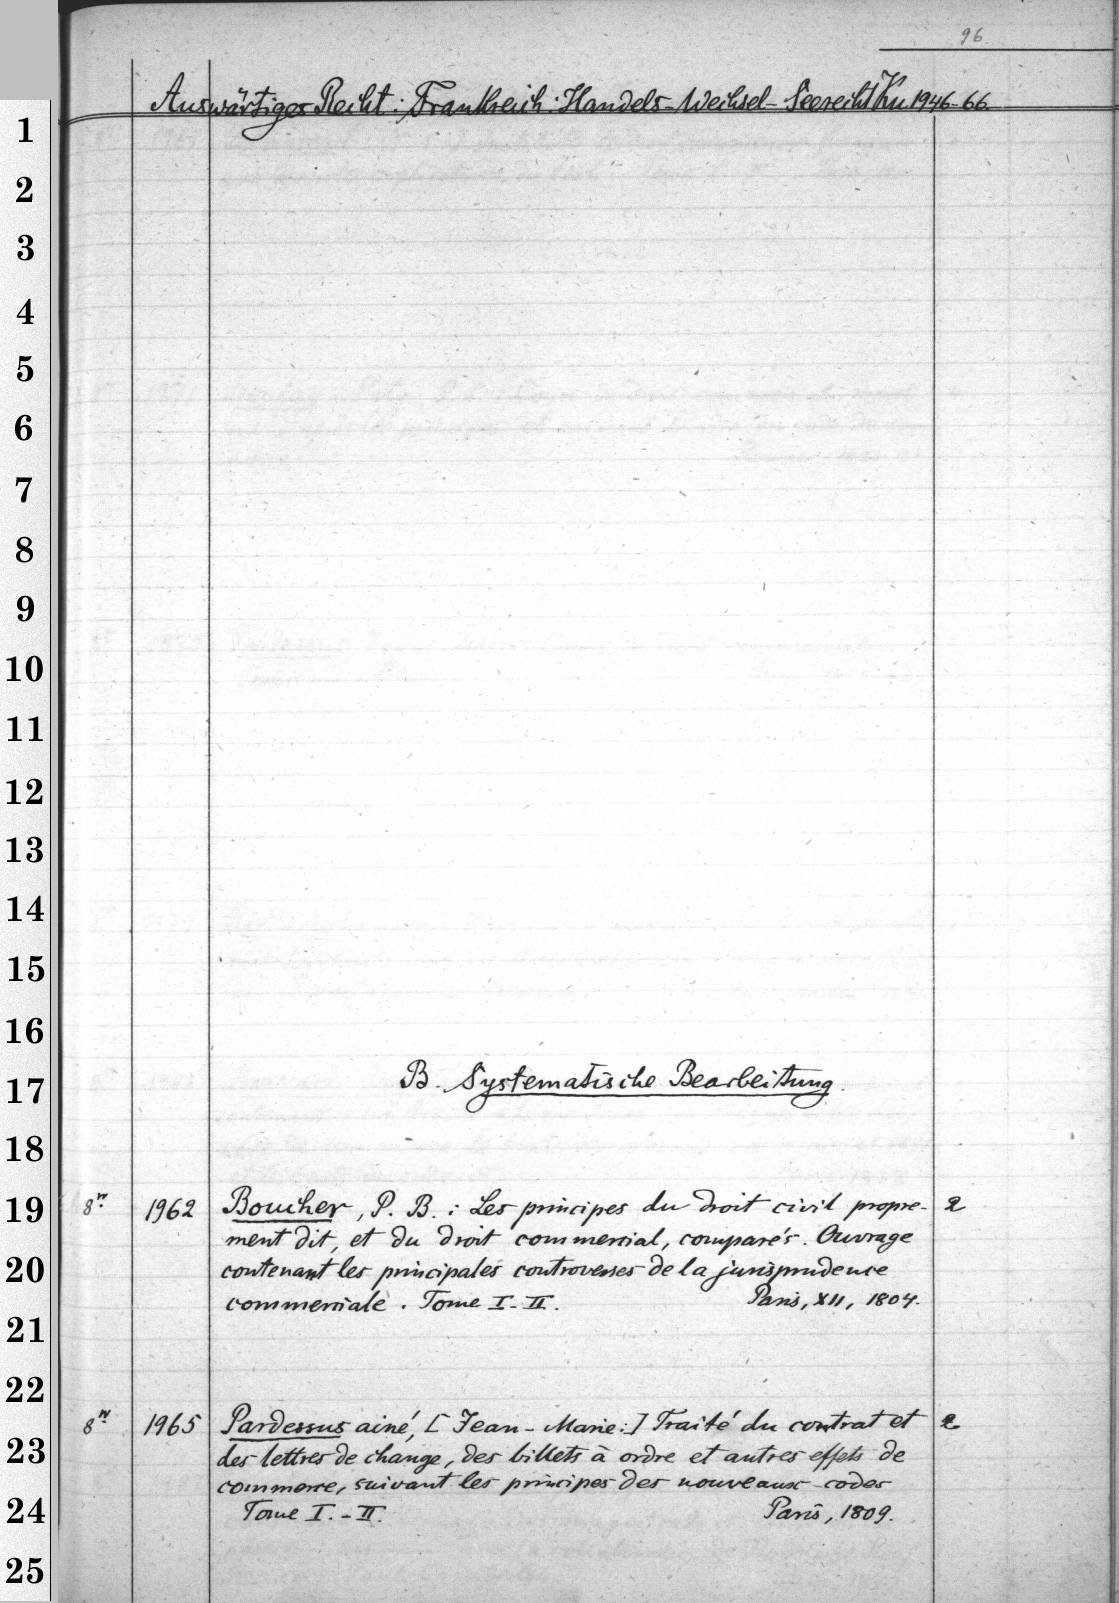 96
Auswärtiges Recht: Frankreich: Handels-Wechsel-Seerecht Ku 1946-66.
1
2
3
4
5
6
7
8
9
10
11
12
13
14
15
16
B. Systematische Bearbeitung.
17
18
19 8° 1962 Boucher, P. B.: Les principes du droit civil propre- 2
ment dit, et du droit commercial, comparés. Ouvrage
20 contenant les principales controverses de la jurisprudence
commerciale. Tome I-II. Paris, XII, 1804.
21
22
8° 1965 Pardessus ainé, [Jean-Marie:] Traité du contrat et 2
23 des lettres de change, des billets à ordre et autres effets de
commerce, suivant les principes des nouveaux codes
24 Tome I.-II. Paris, 1809.
25